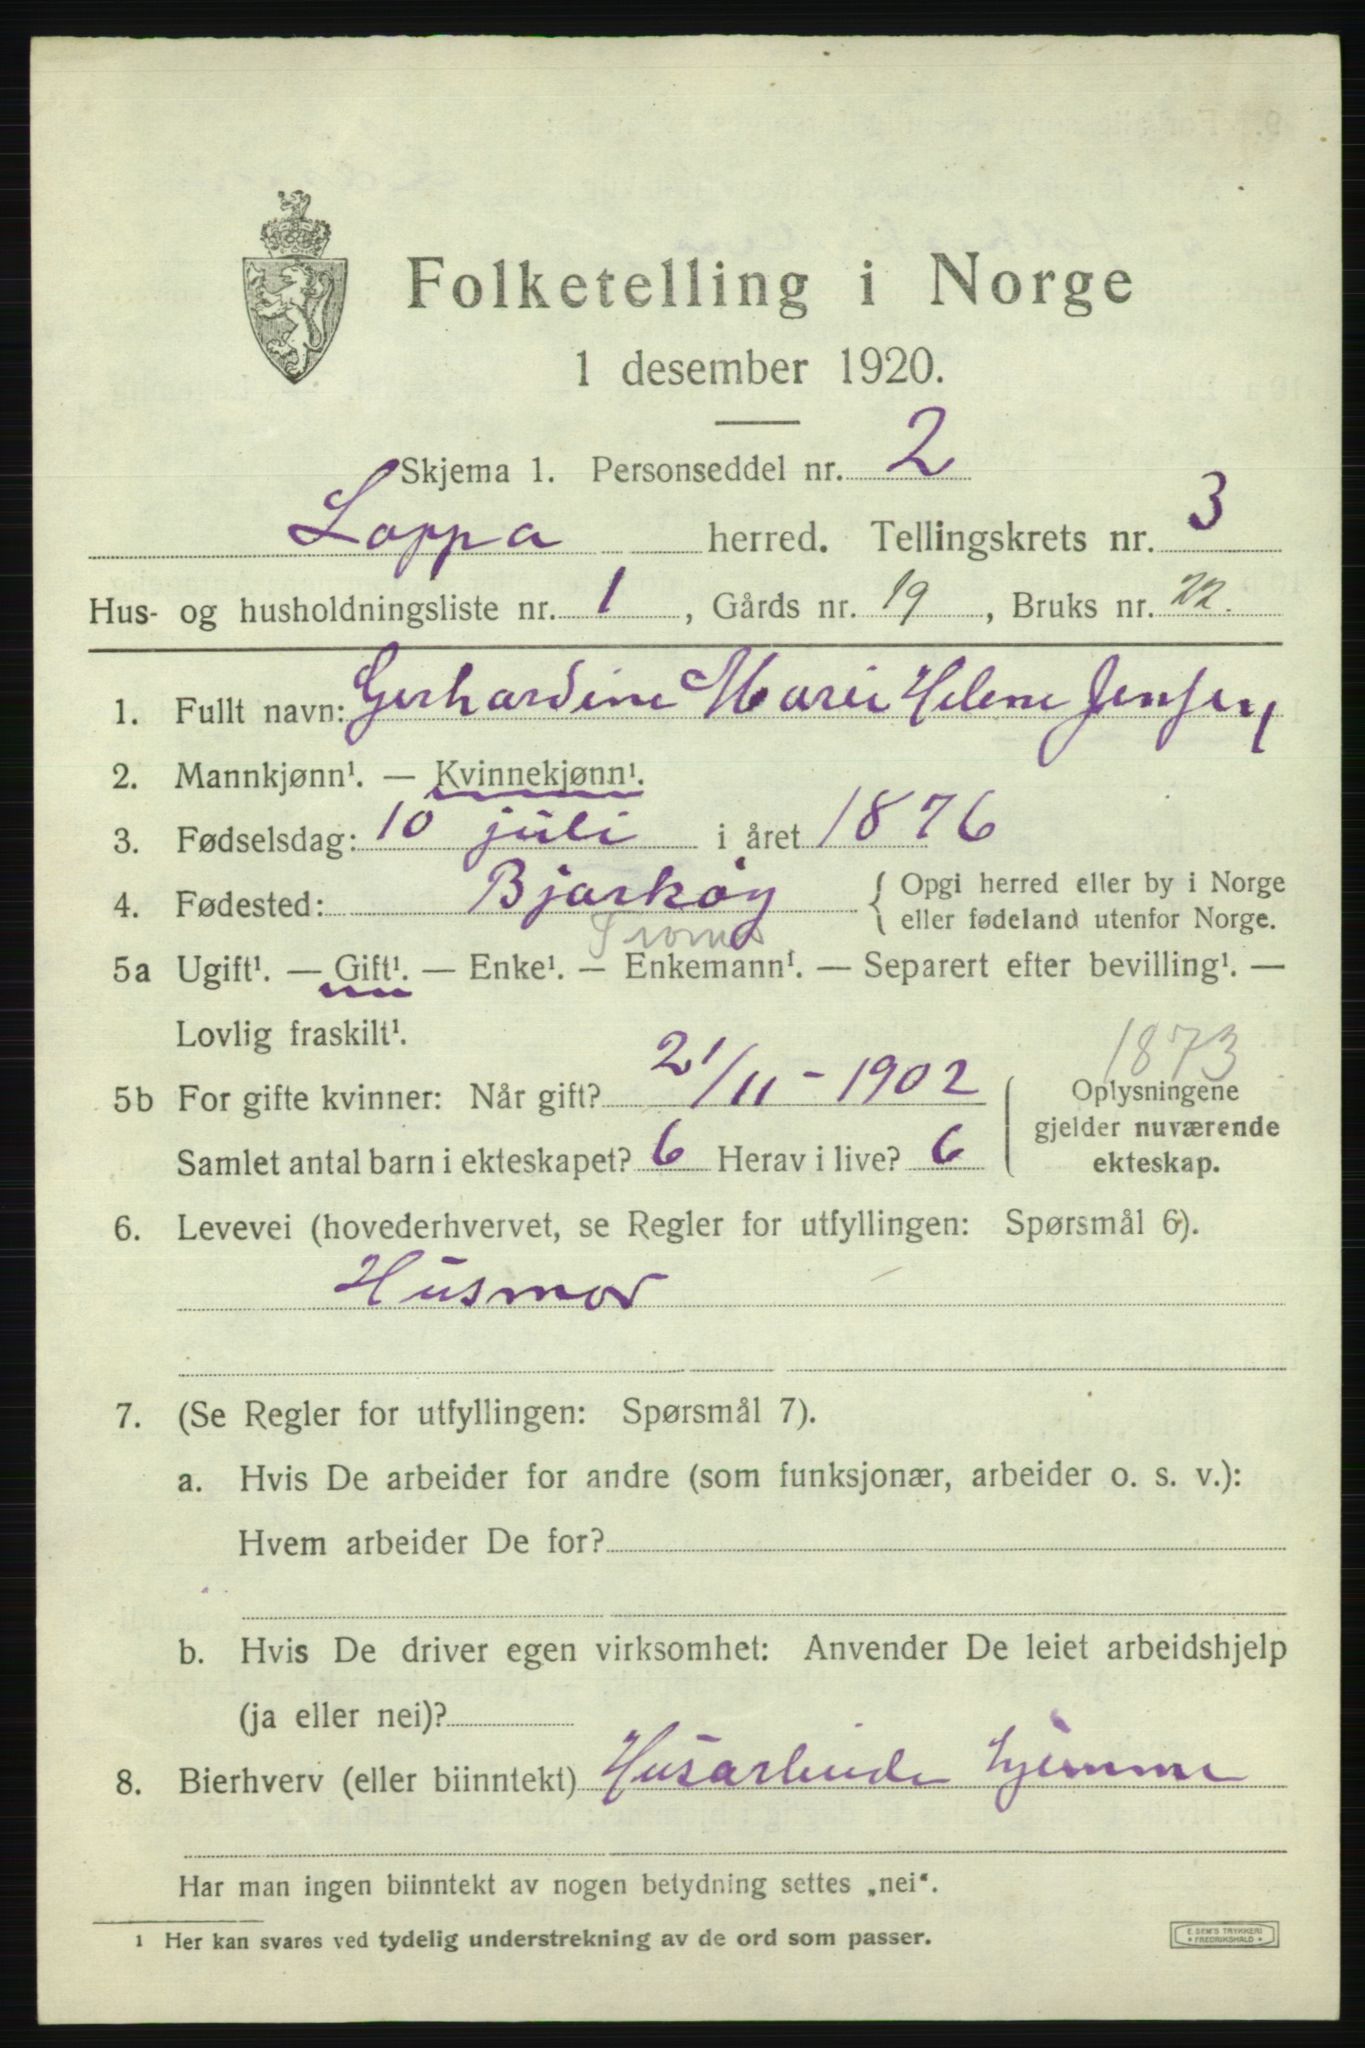 Folketelling i Norge
1 desember 1920.
Skjema 1. Personseddel nr. 2
Loppa herred. Tellingskrets nr. 3
Hus- og husholdningsliste nr. 1, Gårds nr. 19, Bruks nr. 22.
1. Fullt navn: Gerhardine Marie Helene Jensen
2. Mannkjønn¹. — Kvinnekjønn¹.
3. Fødselsdag: 10 juli i året 1876
4. Fødested: Bjarkøy { Opgi herred eller by i Norge
eller fødeland utenfor Norge.
Troms
5a Ugift¹. — Gift¹. — Enke¹. — Enkemann¹. — Separert efter bevilling¹. —
Lovlig fraskilt¹.
1873
5b For gifte kvinner: Når gift? 21/11 - 1902 Oplysningene
gjelder nuværende
Samlet antal barn i ekteskapet? 6 Herav i live? 6 ekteskap.
6. Levevei (hovederhvervet, se Regler for utfyllingen: Spørsmål 6).
Husmor
7. (Se Regler for utfyllingen: Spørsmål 7).
a. Hvis De arbeider for andre (som funksjonær, arbeider o. s. v.):
Hvem arbeider De for?
b. Hvis De driver egen virksomhet: Anvender De leiet arbeidshjelp
(ja eller nei)?
8. Bierhverv (eller biinntekt) Husarbeide hjemme
Har man ingen biinntekt av nogen betydning settes „nei“.
¹ Her kan svares ved tydelig understrekning av de ord som passer.
E. SEM'S TRYKKERI
FREDRIKSHALD